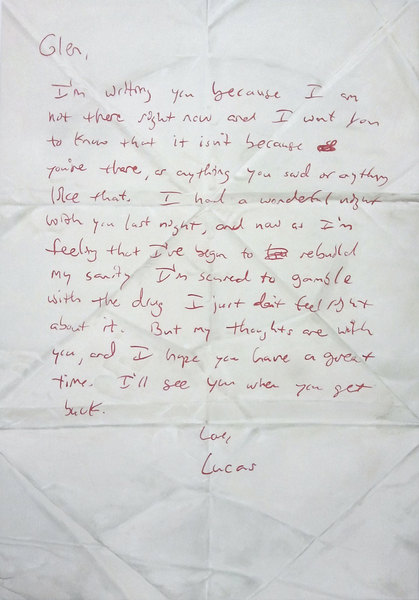 Glen,
I'm writing you because I am
not there right now and I want you
to know that it isn't because
you're there, or anything you said or anything
like that. I had a wonderful night
with you last night, and now as I'm
feeling that I've begun to rebuild
my sanity I'm scared to gamble
with the drug I just don't feel right
about it. But my thoughts are with
you, and I hope you have a great
time. I'll see you when you get
back.
Love,
Lucas